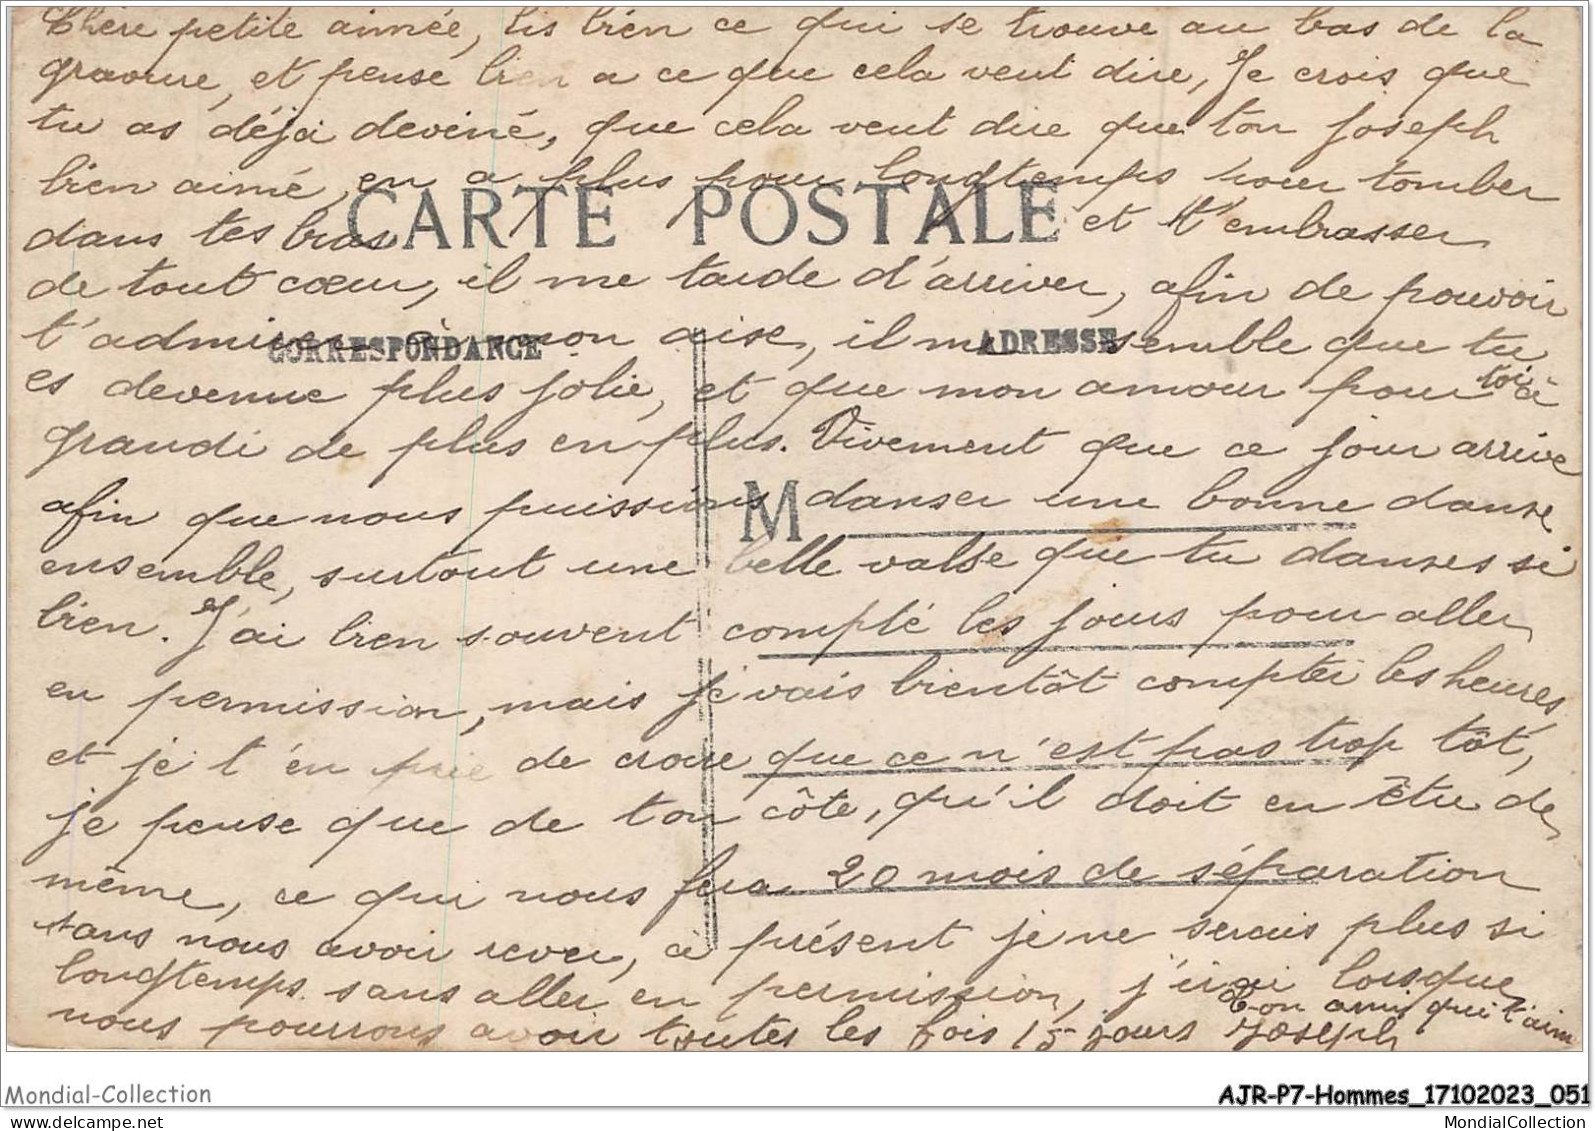 Chère petite aimée, lis bien ce qui se trouve au bas de la
gravure, et pense bien a ce que cela veut dire, Je crois que
tu as déja deviné, que cela veut dire que ton Joseph
bien aimé, en a plus pour longtemps pour tomber
CARTE POSTALE
dans tes bras et t'embrasser
de tout cœur, il me tarde d'arriver, afin de pouvoir
t'admirer à mon aise, il me semble que tu
CORRESPONDANCE ADRESSE
es devenue plus jolie, et que mon amour pour toi a
grandi de plus en plus. Vivement que ce jour arrive
afin que nous puissions danser une bonne danse
M
ensemble, surtout une belle valse que tu danses si
bien. J'ai bien souvent compté les jours pour aller
en permission, mais je vais bientôt compter les heures,
et je t'en prie de croire que ce n'est pas trop tôt,
je pense que de ton côte, qu'il doit en être de
même, ce qui nous fera 20 mois de séparation
sans nous avoir rever, à présent je ne serais plus si
longtemps sans aller en permission, j'irai lorsque
nous pourrons avoir toutes les fois 15 jours
Ton ami qui t'aime
Joseph
Mondial-Collection
AJR-P7-Hommes_17102023_051
MondialCollection